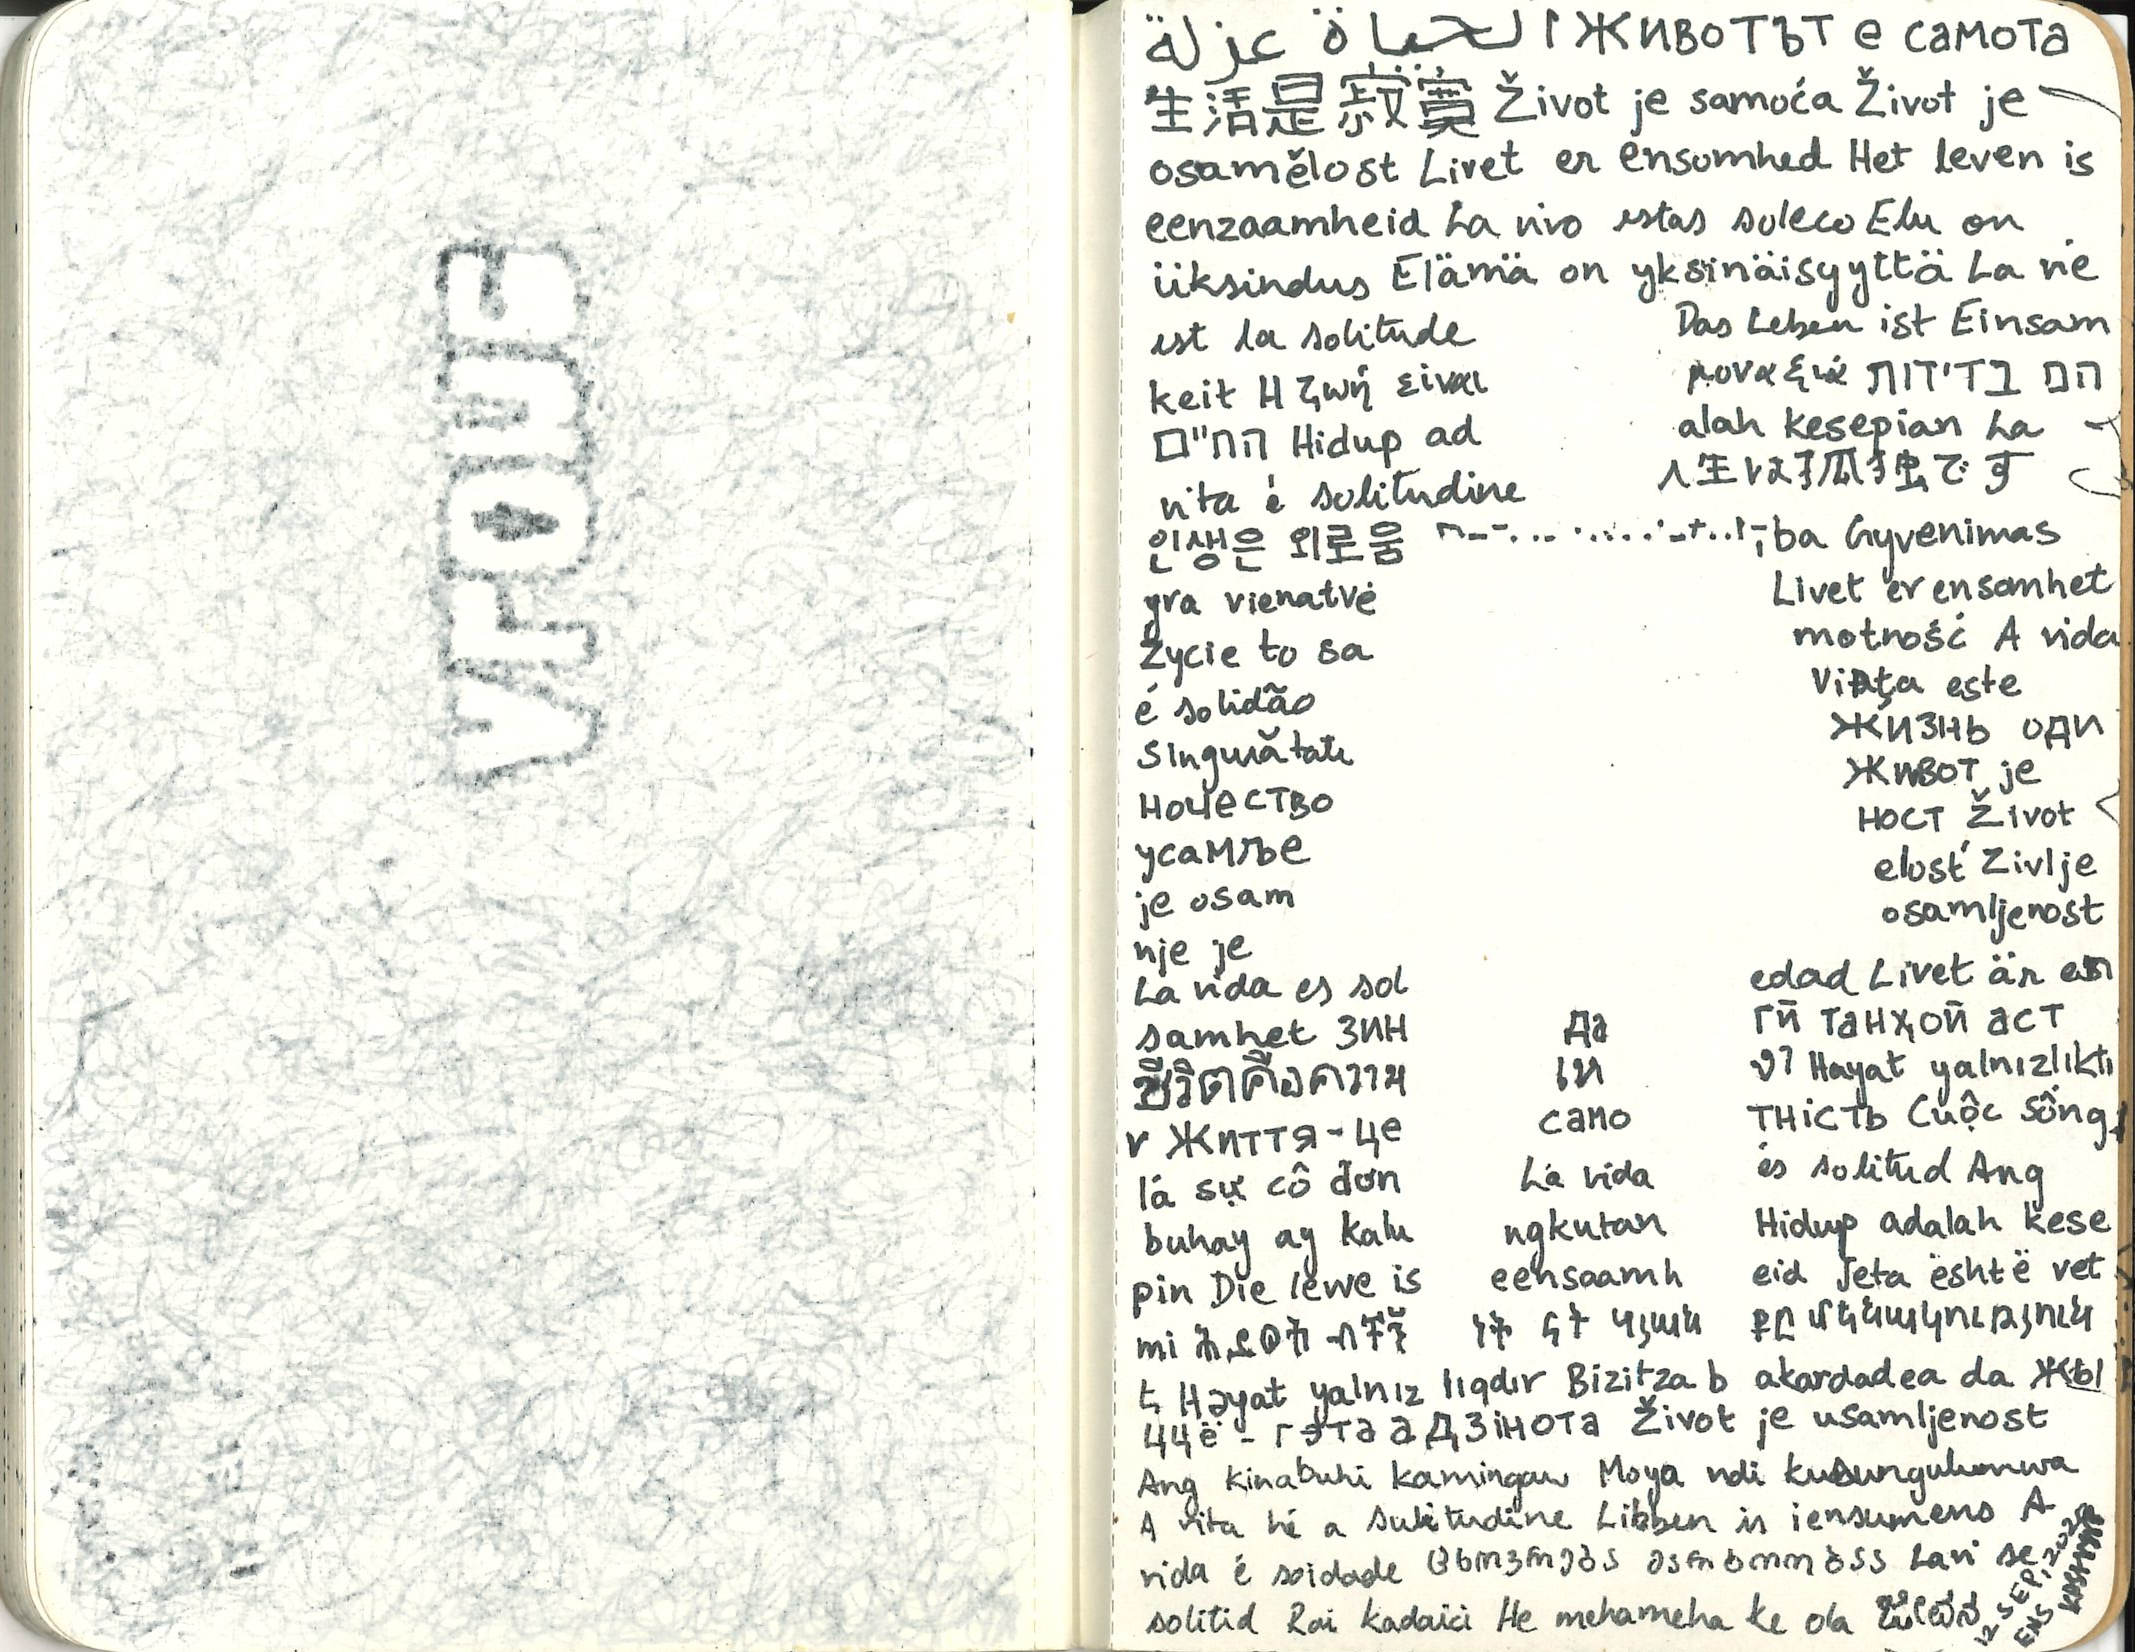 VFOUS
الحياة عزلة Животът е самота
生活是寂寞 Život je samoća Život je
osamělost Livet er ensomhed Het leven is
eenzaamheid La vivo estas soleco Elu on
üksindus Elämä on yksinäisyyttä La vie
est la solitude Das Leben ist Einsam
keit Η ζωή είναι μοναξιά הם בדידות
החיים Hidup ad alah kesepian La
vita é solitudine 人生は孤独です
인생은 외로움 ība Gyvenimas
yra vienatvė Livet er ensomhet
Życie to sa motność A vida
é solidão Viața este
Singurătate Жизнь оди
ночество Живот је
усамље ност Život
je osam elosť Zivlje
nje je osamljenost
La vida es sol edad Livet är en
samhet Зин да гӣ танҳоӣ аст
ชีวิตคือความ เห งา Hayat yalnızlıktı
r Життя - це само тність Cuộc sống
lá sự cô đơn La vida és solitud Ang
buhay ay kalu ngkutan Hidup adalah kese
pin Die lewe is eensaamh eid Jeta është vet
mi ሕይወት ብቸኝ ነት ነት կյան քը մենակություն
է Həyat yalnız lıqdır Bizitza b akardadea da Жы
ццё - гэта адзінота Život je usamljenost
Ang kinabuhi kamingaw Moyo ndi kusungulumwa
A vita hé a sulitudine Libben is iensumens A
vida é soidade ცხოვრება Lavi se
solitid Rai kadaici He mehameha ke ola
12 SEP, 202
ENS
KASHYAP